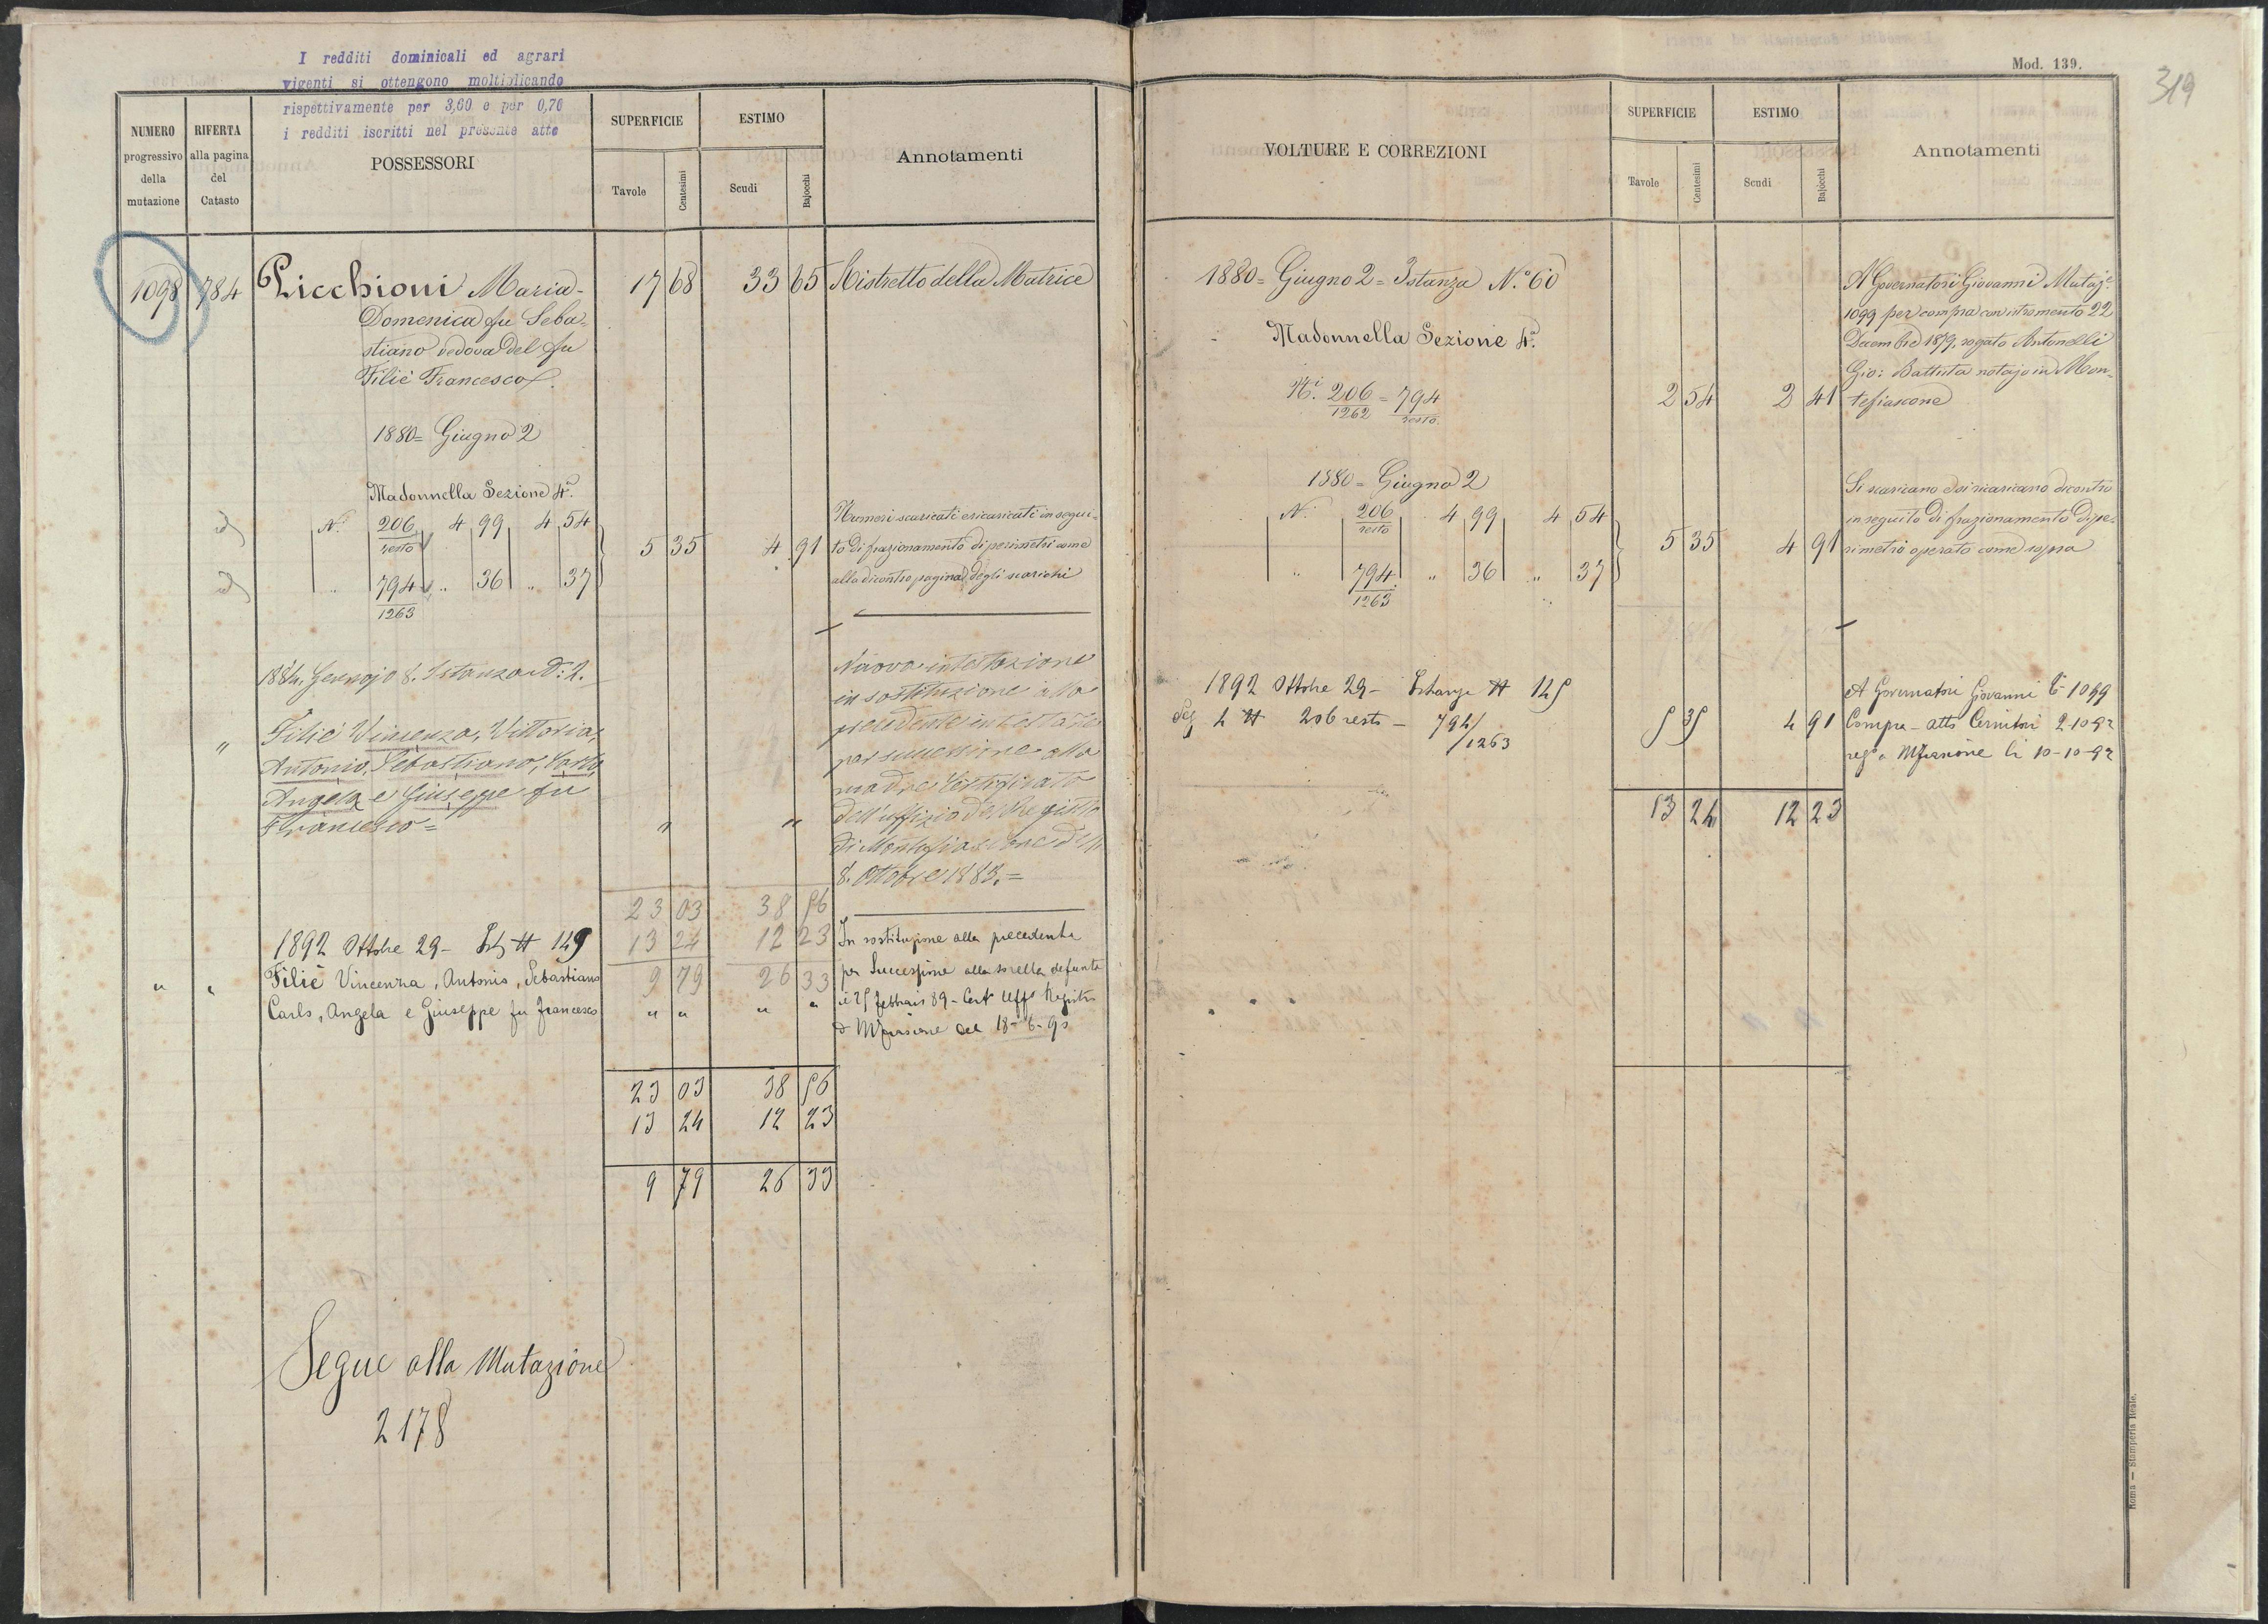 I redditi dominicali ed agrari
vigenti si ottengono moltiplicando
rispettivamente per 3,60 e per 0,76
i redditi iscritti nel presente atto
NUMERO
progressivo
della
mutazione
RIFERTA
alla pagina
del
Catasto
POSSESSORI
SUPERFICIE
Tavole
Centesimi
ESTIMO
Scudi
Bajocchi
Annotamenti
1098 784 Picchioni Maria- 17 68 33 65 Ristretto della Matrice
Domenica fu Seba-
stiano vedova del fu
Filiè Francesco
1880= Giugno 2
Madonnella Sezione 4ª.
N.° 206/resto 4 99 4 54
" 794/1263 " 36 " 37
5 35 4 91
Numeri scaricati e ricaricati in segui-
to di frazionamento di perimetri come
alla dicontro pagina degli scarichi
1884. Gennajo 8. Istanza N°: 2.
" Filiè Vincenza, Vittoria,
Antonio, Sebastiano, Carlo,
Angela e Giuseppe fu
Francesco=
" "
Nuova intestazione
in sostituzione alla
precedente intestazione
per successione alla
madre Certificato
dell'uffizio del Registro
di Montefiascone dell'
8. Ottobre 1883.=
23 03 38 56
13 24 12 23
9 79 26 33
1892 Ottobre 29- Ist N 149
" " Filiè Vincenza, Antonio, Sebastiano
Carlo, Angela e Giuseppe fu Francesco " " " "
In sostituzione alla precedente
per Successione alla sorella defunta
il 25 Febbraio 89- Cert Uff° Registro
di Mfiascone del 18-6-90
23 03 38 56
13 24 12 23
9 79 26 33
Segue alla Mutazione
2178
Mod. 139.
319
VOLTURE E CORREZIONI
SUPERFICIE
Tavole
Centesimi
ESTIMO
Scudi
Bajocchi
Annotamenti
1880= Giugno 2= Istanza N.° 60
Madonnella Sezione 4ª.
Ni. 206/1262 = 794/resto
2 54 2 41
A Governatori Giovanni Mutaz.e
1099 per compra con istromento 22
Decembre 1879, rogato Antonelli
Gio: Battista notajo in Mon-
tefiascone
1880= Giugno 2
N.° 206/resto 4 99 4 54
" 794/1263 " 36 " 37
5 35 4 91
Si scaricano e si ricaricano dicontro
in seguito di frazionamento di pe-
rimetro operato come sopra
1892 Ottobre 29- Istanza N 145
Sez 4 N 206 resto - 794/1263
5 35 4 91
A Governatori Giovanni 1099
Compra - atto Cernitori 2-10-92
reg° a Mfiascone li 10-10-92
13 24 12 23
Roma — Stamperia Reale.